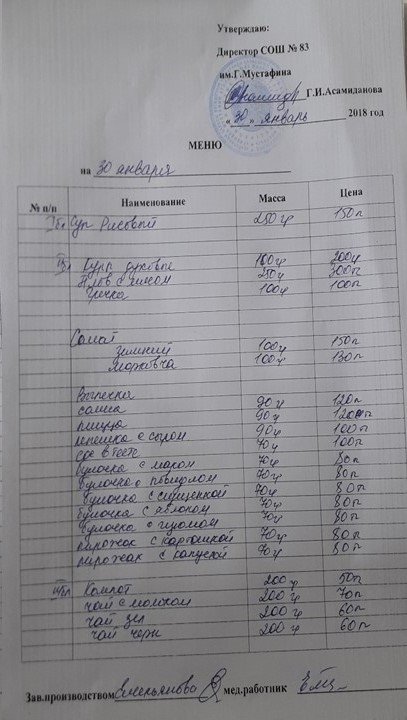 Утверждаю:
Директор СОШ № 83
им.Г.Мустафина
Г.И.Асамиданова
« 30 » январь 2018 год
МЕНЮ
на 30 января
№ п/п Наименование Масса Цена
Iбл Суп Рисовый 250 гр 150 п
IIбл духовые 200 п
Плов с мясом 250 300 п
Гречка 100 гр 100 п
Салат
Зимний 100 гр 150 п
Морковча 100 гр 130 п
Выпечка
самса 90 гр 120 п
пицца 90 гр 120 п
лепешка с сыром 90 гр 100 п
70 гр 100 п
булочка с маком 70 гр 80 п
булочка с повидлом 70 гр 80 п
булочка с сгущенкой 70 гр 80 п
булочка с яблоком 70 гр 80 п
булочка с 70 гр 80 п
пирожок с картошкой 70 гр 80 п
пирожок с капустой 70 гр 80 п
IIIбл Компот 200 гр 50 п
чай с молоком 200 гр 70 п
чай зел 200 гр 60 п
чай черн 200 гр 60 п
Зав.производством Емельянова мед.работник